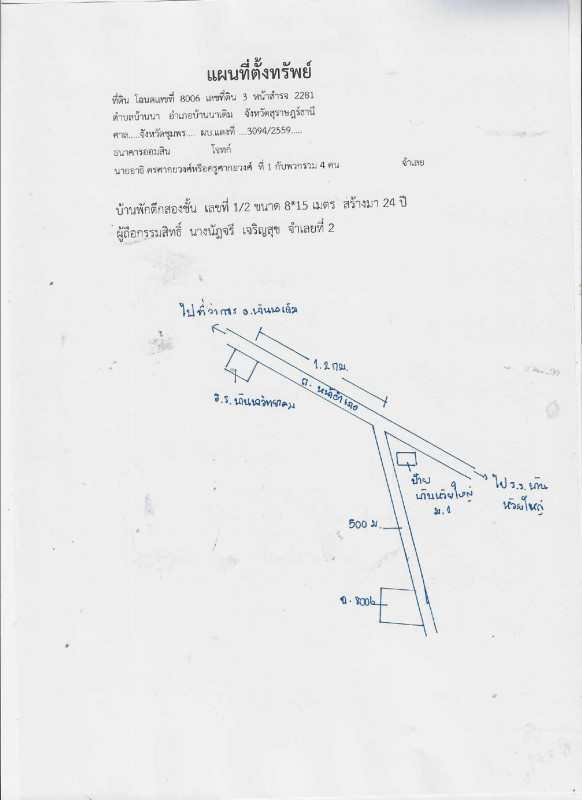 แผนที่ตั้งทรัพย์
ที่ดิน โฉนดเลขที่ 8006 เลขที่ดิน 3 หน้าสำรวจ 2281
ตำบลบ้านนา อำเภอบ้านนาเดิม จังหวัดสุราษฎร์ธานี
ศาล.....จังหวัดชุมพร.... ผบ.แดงที่ ....3094/2559.....
ธนาคารออมสิน โจทก์
นายอาธิ ที่ 1 กับพวกรวม 4 คน จำเลย
บ้านพักตึกสองชั้น เลขที่ 1/2 ขนาด 8*15 เมตร สร้างมา 24 ปี
ผู้ถือกรรมสิทธิ์ นางนัฏจรี เจริญสุข จำเลยที่ 2
ไปที่ว่าการ อ.บ้านนาเดิม
1.2 กม.
ถ. หน้าอำเภอ
ร.ร. บ้านนาวิทยาคม
ป้าย
บ้านห้วยใหญ่
ม.1
ไป ร.ร. บ้าน
ห้วยใหญ่
500 ม.
ฉ. 8006